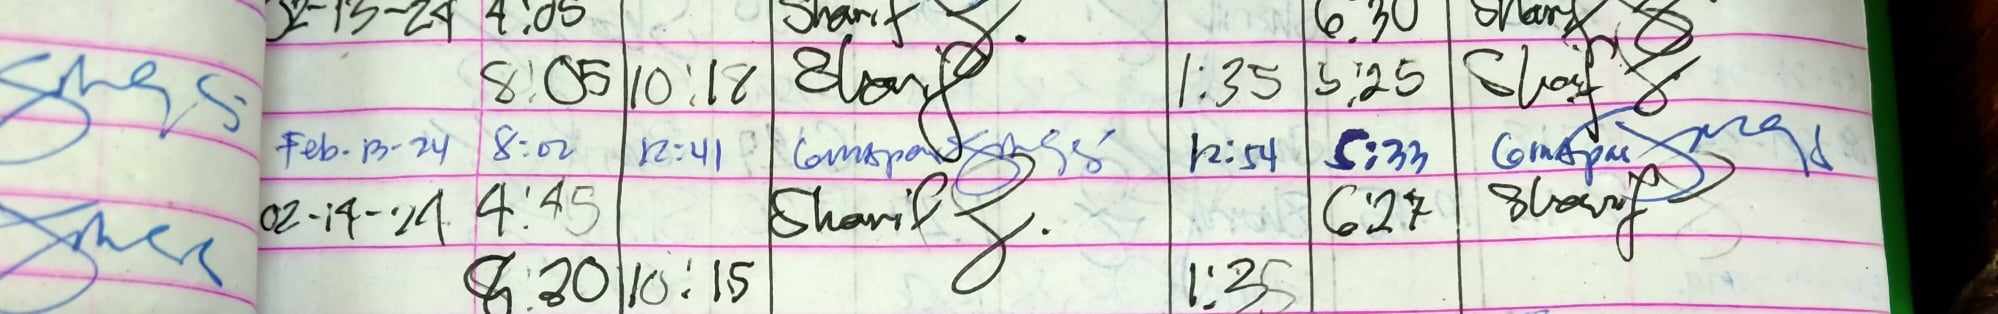 02-13-24 4:05 Sharif 6:30 Sharif
8:05 10:18 Sharif 1:35 5:25 Sharif
Feb. 13-24 8:02 12:41 12:54 5:33
02-14-24 4:45 Sharif 6:27 Sharif
8:20 10:15 1:35